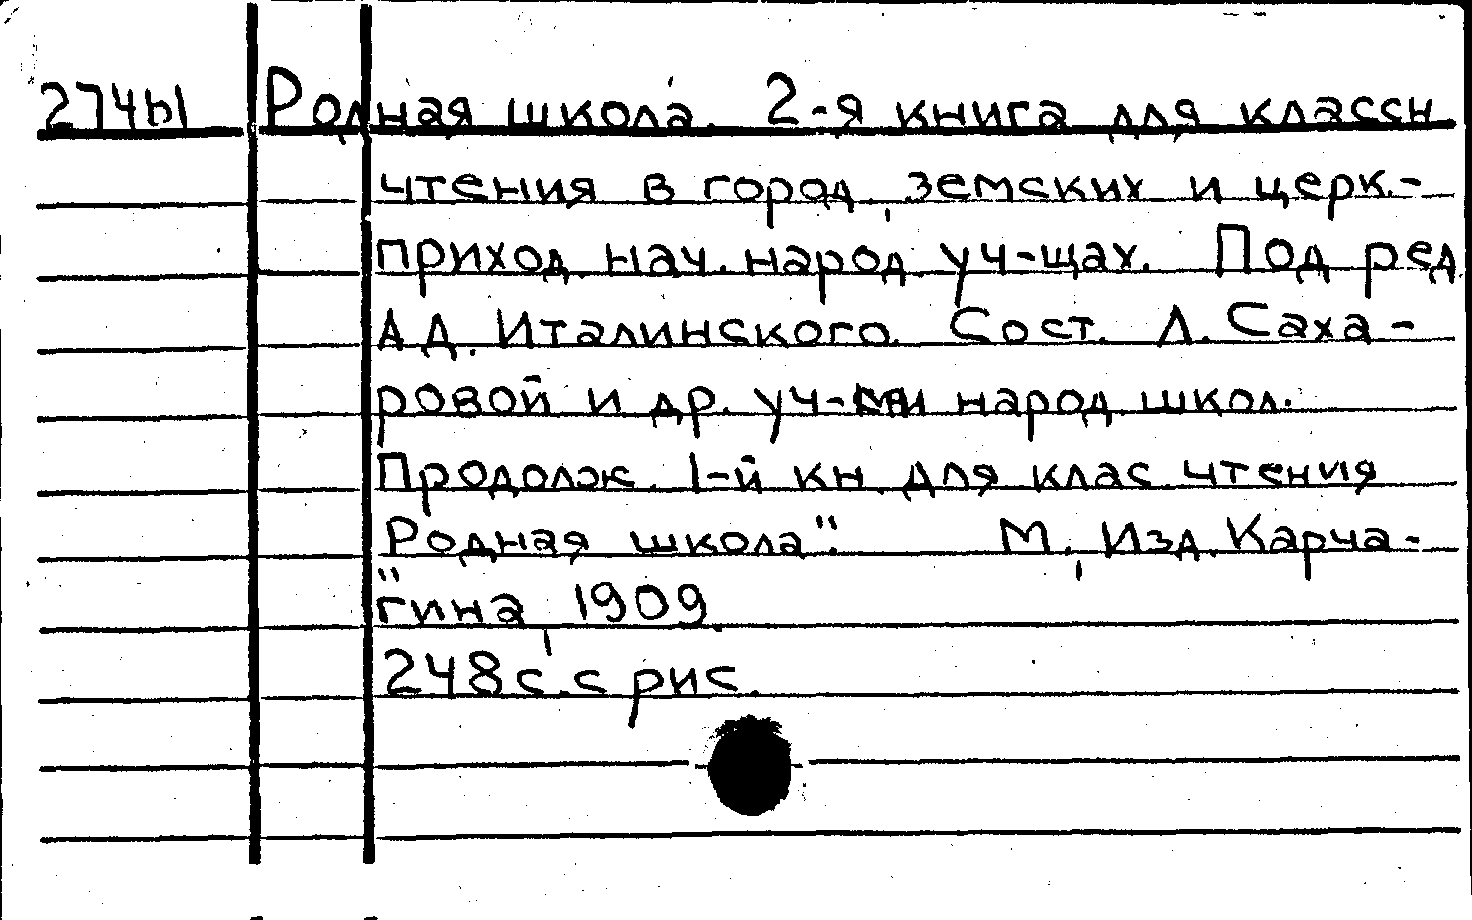 274ы Родная школа. 2-я книга для классн
чтения в город, земских и церк.-
приход. нач. народ. уч-щах. Под ред
А.Д. Италинского. Сост. Л. Саха-
ровой и др. уч-ми народ. школ.
Продолж. 1-й кн. для клас. чтения
"Родная школа". М., Изд. Карча-
гина, 1909.
248 с. с рис.